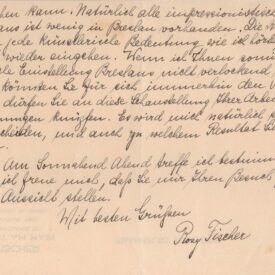 hen kann. Natürlich alle impressionistisch
aus ist wenig in Breslau vorhanden. Die
jede künstlerische Bedeutung wie ich hört
wieder eingehen. Wenn ich Ihnen somit
Einstellung Breslaus, nicht verlockend
könnten Sie für sich immerhin den
dürfen Sie an diese Schaustellung Ihrer Arbei
ungen knüpfen. Es wird mich natürlich
scheiden, und auch zu welchem Resultat S
Am Sonnabend Abend treffe ich bestimm
ich freue mich, daß Sie mir Ihren Besuch
Aussicht stellen.
Mit besten Grüßen
Rosy Fischer